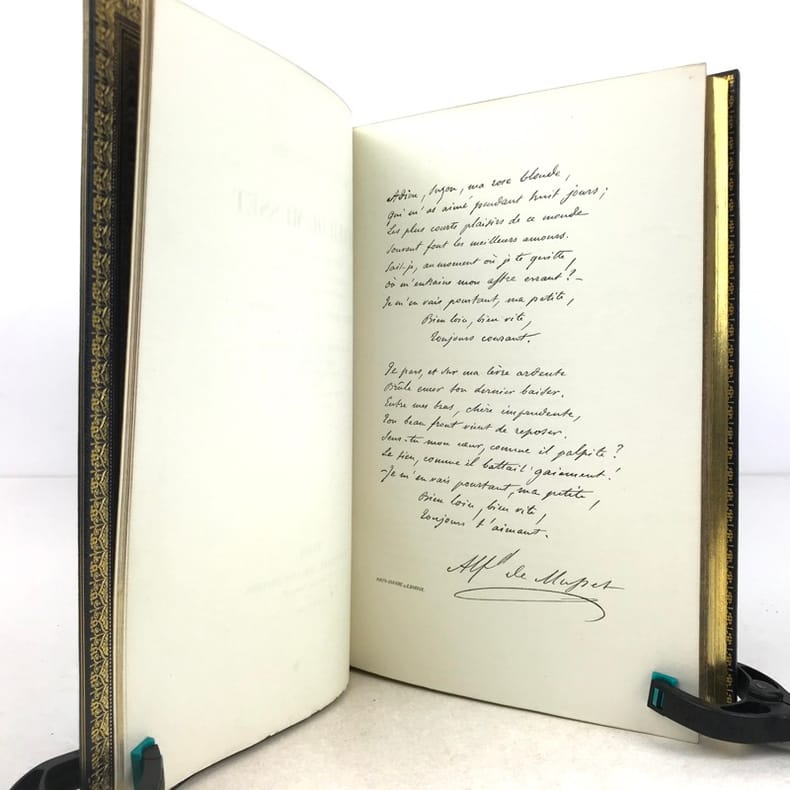 Adieu, Suzon, ma rose blonde,
qui m'as aimé pendant huit jours ;
Les plus courts plaisirs de ce monde
Souvent font les meilleurs amours.
Sais-je, au moment où je te quitte,
Où m'entraîne mon astre errant ? –
Je m'en vais pourtant, ma petite,
Bien loin, bien vite,
Toujours courant.
Je pars, et sur ma lèvre ardente
Brûle encor ton dernier baiser.
Entre mes bras, chère imprudente,
Ton beau front vient de reposer.
Sens-tu mon cœur, comme il palpite ?
Le tien, comme il battait gaiement !
– Je m'en vais pourtant, ma petite,
Bien loin, bien vite,
Toujours t'aimant.
Alf^d de Musset